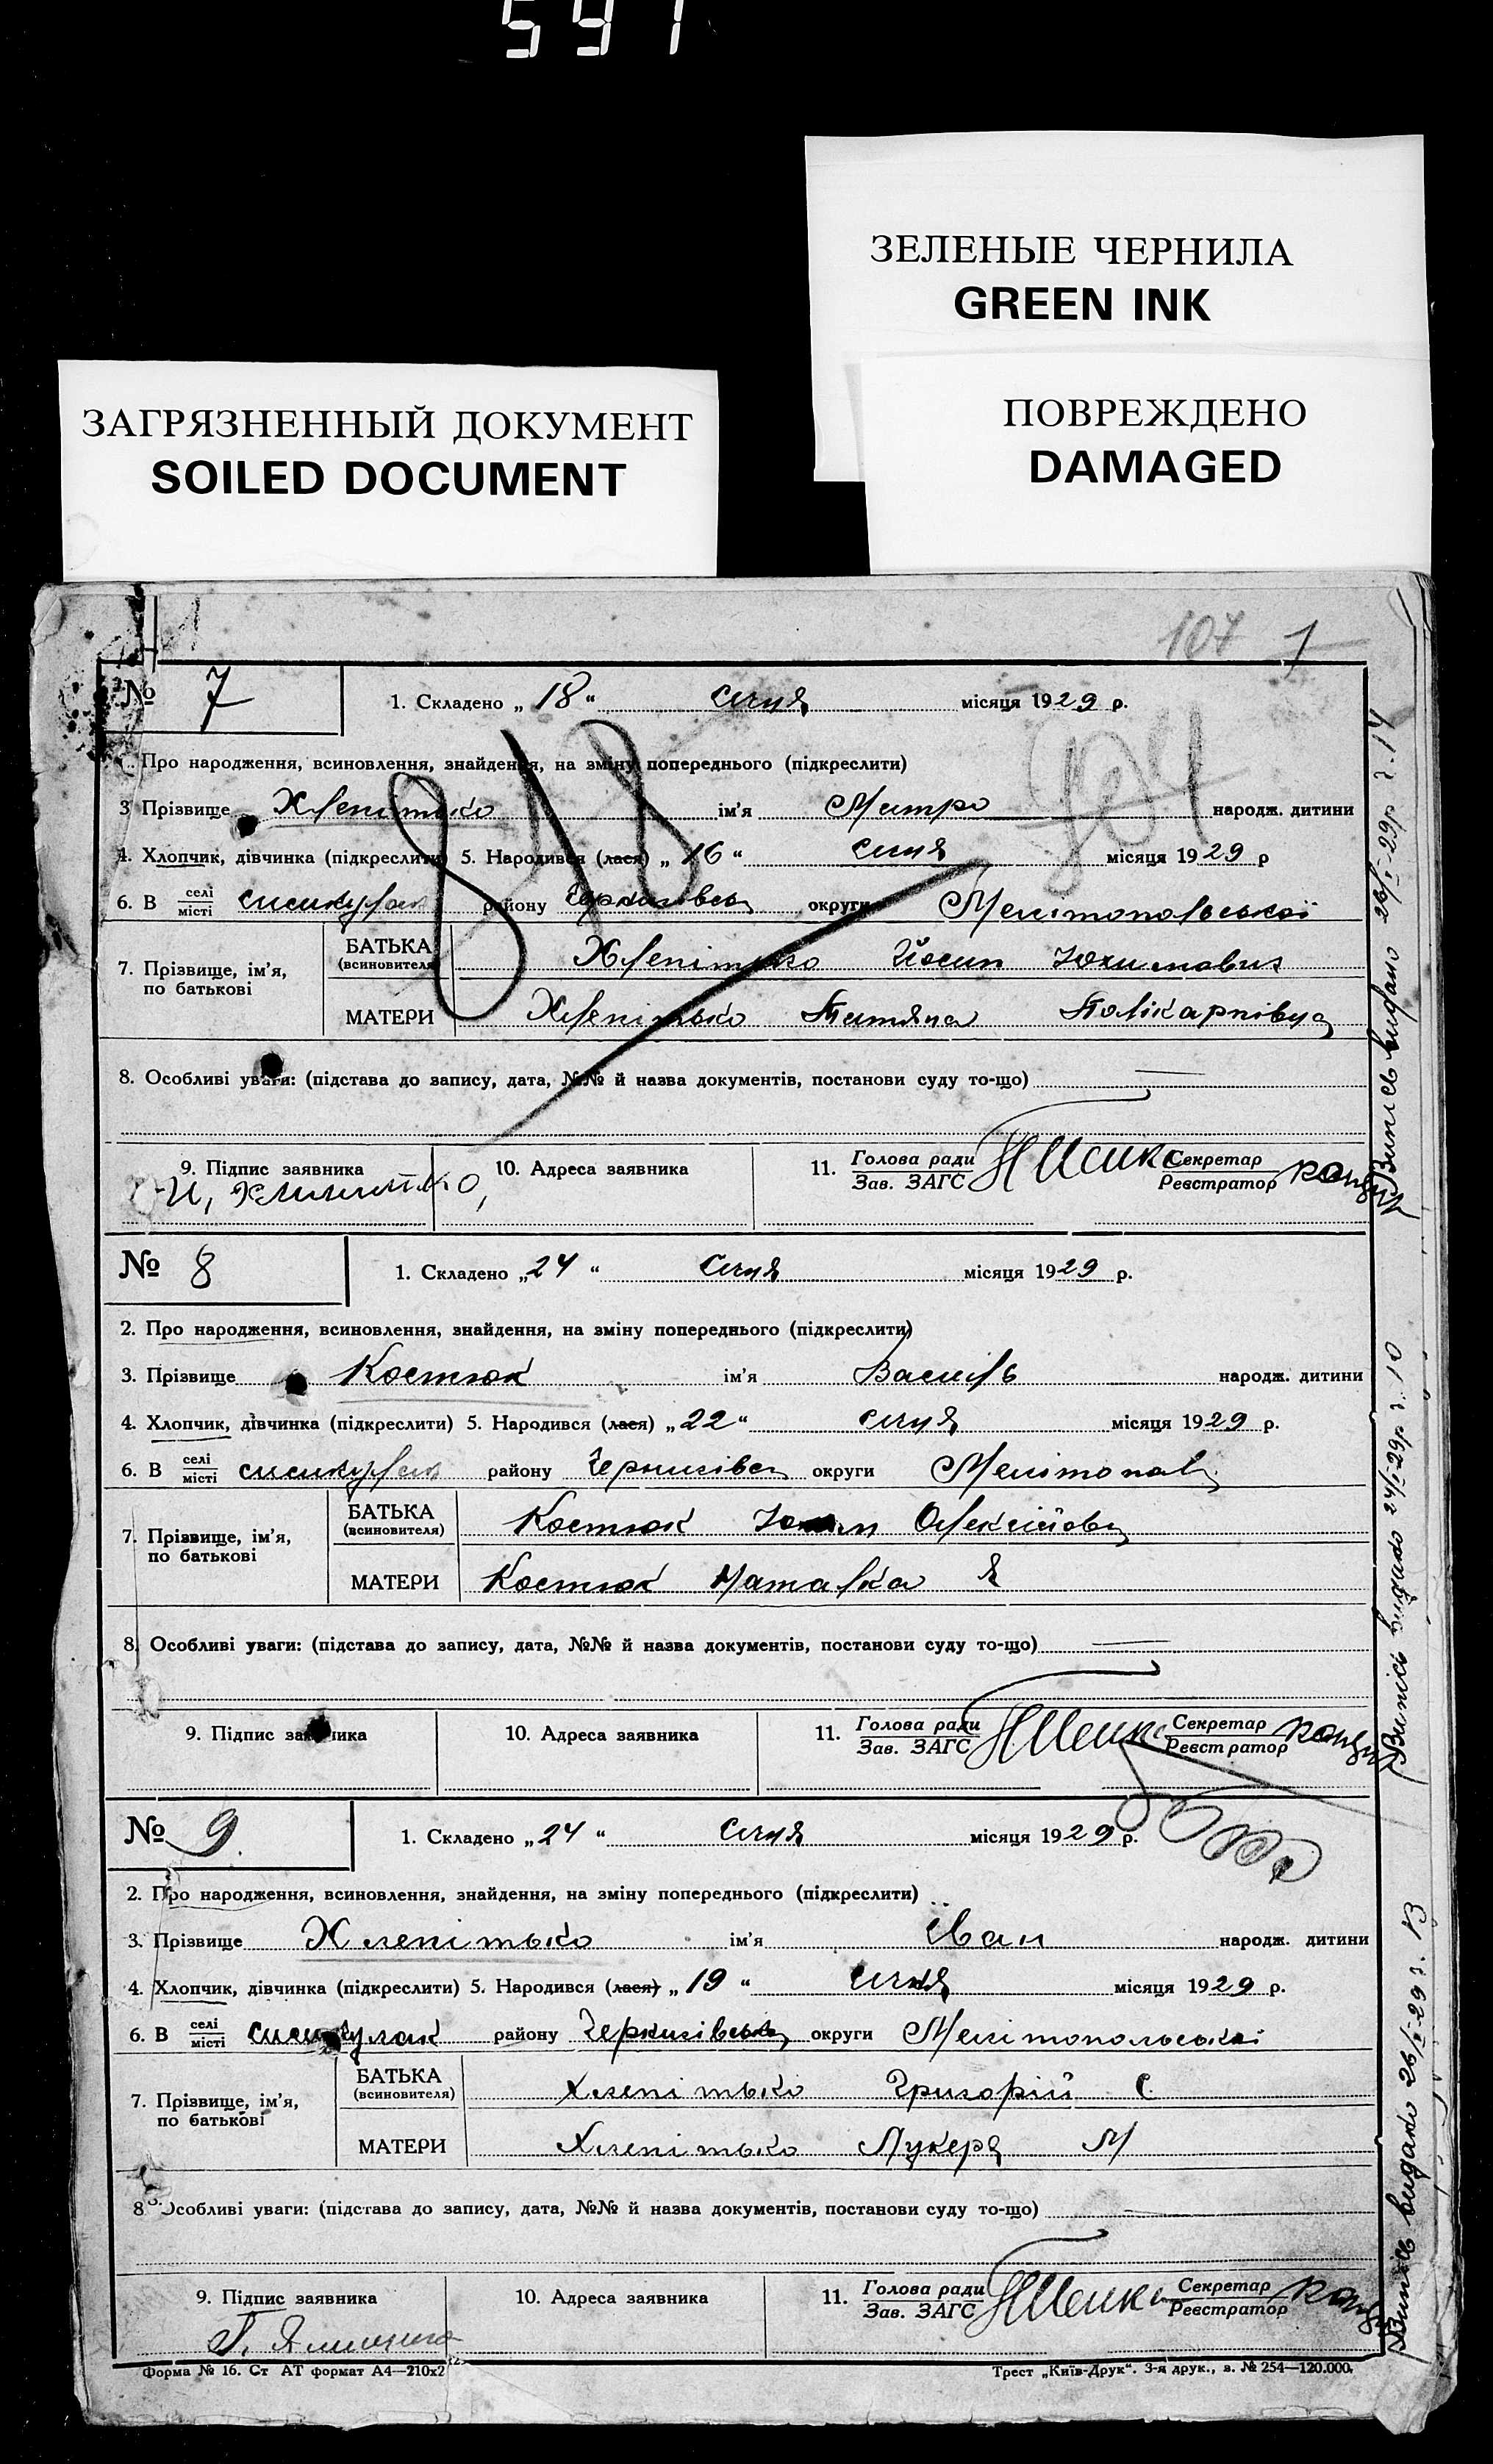 591
ЗЕЛЕНЫЕ ЧЕРНИЛА
GREEN INK
ЗАГРЯЗНЕННЫЙ ДОКУМЕНТ
SOILED DOCUMENT
ПОВРЕЖДЕНО
DAMAGED
107 1
№ 7 1. Складено „ 18 “ січня місяця 1929 р.
Про народження, всиновлення, знайдення, на зміну попереднього (підкреслити)
3 Прізвище Хлепітько ім'я Митро народж. дитини
4. Хлопчик, дівчинка (підкреслити) 5. Народився (лася) „ 16 “ січня місяця 1929 р
6. В селі місті району округи Мелітопольської
7. Прізвище, ім'я, по батькові БАТЬКА (всиновителя) Хлепітько Йосип Юхимович
МАТЕРИ Хлепітько Титяна Полікарпівна
8. Особливі уваги: (підстава до запису, дата, №№ й назва документів, постанови суду то-що)
9. Підпис заявника 10. Адреса заявника 11. Голова ради Зав. ЗАГС Секретар Реєстратор
Випись видано 26/I-29р
№ 8 1. Складено „ 24 “ січня місяця 1929 р.
2. Про народження, всиновлення, знайдення, на зміну попереднього (підкреслити)
3. Прізвище Костюк ім'я Василь народж. дитини
4. Хлопчик, дівчинка (підкреслити) 5. Народився (лася) „ 22 “ січня місяця 1929 р.
6. В селі місті району округи
7. Прізвище, ім'я, по батькові БАТЬКА (всиновителя) Костюк
МАТЕРИ Костюк Наталка Я
8. Особливі уваги: (підстава до запису, дата, №№ й назва документів, постанови суду то-що)
9. Підпис заявника 10. Адреса заявника 11. Голова ради Зав. ЗАГС Секретар Реєстратор
Випись видано 24/I-29р
№ 9 1. Складено „ 24 “ січня місяця 1929 р.
2. Про народження, всиновлення, знайдення, на зміну попереднього (підкреслити)
3. Прізвище Хлепітько ім'я Іван народж. дитини
4. Хлопчик, дівчинка (підкреслити) 5. Народився (лася) „ 19 “ січня місяця 1929 р.
6. В селі місті району округи Мелітопольської
7. Прізвище, ім'я, по батькові БАТЬКА (всиновителя) Хлепітько Григорій С.
МАТЕРИ Хлепітько Лукеря М
8 Особливі уваги: (підстава до запису, дата, №№ й назва документів, постанови суду то-що)
9. Підпис заявника 10. Адреса заявника 11. Голова ради Зав. ЗАГС Секретар Реєстратор
Випись видано 26/I-29
Форма № 16. Ст АТ формат А4—210х2 Трест „Київ-Друк“. 3-я друк., з. № 254—120.000.